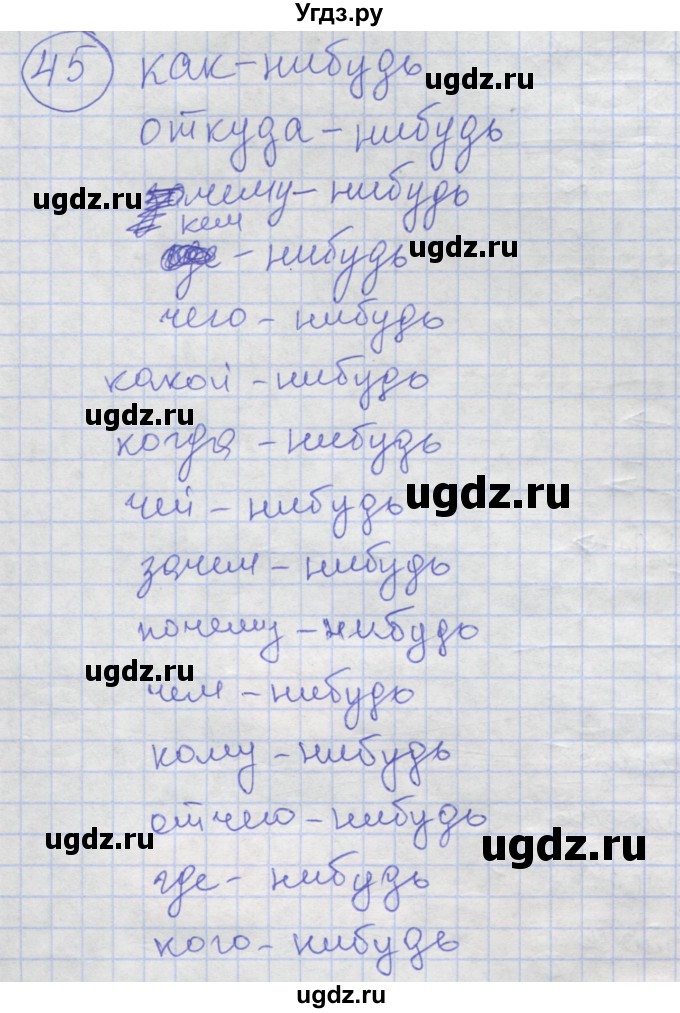 Угдз.ру
45 как-нибудь
ugdz.ru
откуда-нибудь
ugdz.ru
чему-нибудь
кем
-нибудь
ugdz.ru
чего-нибудь
какой-нибудь
ugdz.ru
когда-нибудь
ugdz.ru
чей-нибудь
зачем-нибудь
почему-нибудь
ugdz.ru
чем-нибудь
кому-нибудь
отчего-нибудь
ugdz.ru
ugdz.ru
где-нибудь
кого-нибудь
ugdz.ru